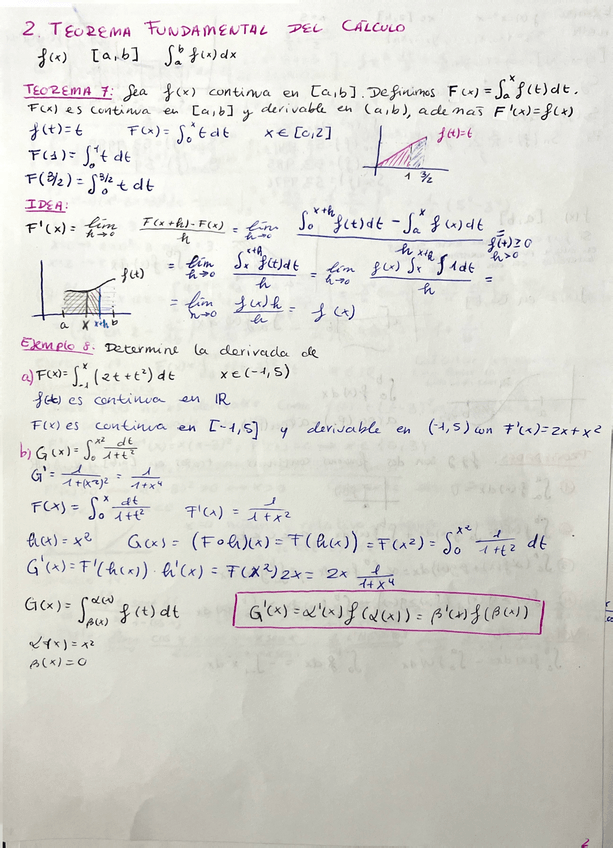 2. TEOREMA FUNDAMENTAL DEL CÁLCULO
f(x) [a,b] ∫_a^b f(x)dx
TEOREMA 7: Sea f(x) continua en [a,b]. Definimos F(x) = ∫_a^x f(t)dt.
F(x) es continua en [a,b] y derivable en (a,b), además F'(x)=f(x)
f(t)=t F(x)=∫_0^x t dt x∈[0,2] f(t)=t
F(1)=∫_0^1 t dt
1 3/2
F(3/2)=∫_0^{3/2} t dt
IDEA:
F'(x) = lím_{h→0} (F(x+h)-F(x))/h = lím_{h→0} (∫_0^{x+h} f(t)dt - ∫_a^x f(x)dt)/h = f(t)≥0 h>0
f(t) = lím_{h→0} (∫_x^{x+h} f(t)dt)/h = lím_{h→0} (f(x) ∫_x^{x+h} 1dt)/h =
a x x+h b = lím_{h→0} (f(x)h)/h = f(x)
Ejemplo 8. Determine la derivada de
a) F(x)=∫_{-1}^x (2t+t²)dt x∈(-1,5)
f(t) es continua en IR
F(x) es continua en [-1,5] y derivable en (-1,5) con F'(x)=2x+x²
b) G(x)=∫_0^{x²} dt/(1+t²)
G'= 1/(1+(x²)²) = 1/(1+x⁴)
F(x)=∫_0^x dt/(1+t²) F'(x) = 1/(1+x²)
h(x)=x² G(x)=(F∘h)(x)=F(h(x))=F(x²)=∫_0^{x²} 1/(1+t²) dt
G'(x)=F'(h(x))·h'(x)=F(x²)2x=2x 1/(1+x⁴)
G(x)=∫_{β(x)}^{α(x)} f(t)dt G'(x)=α'(x)f(α(x))=β'(x)f(β(x))
α(x)=x²
β(x)=0
2